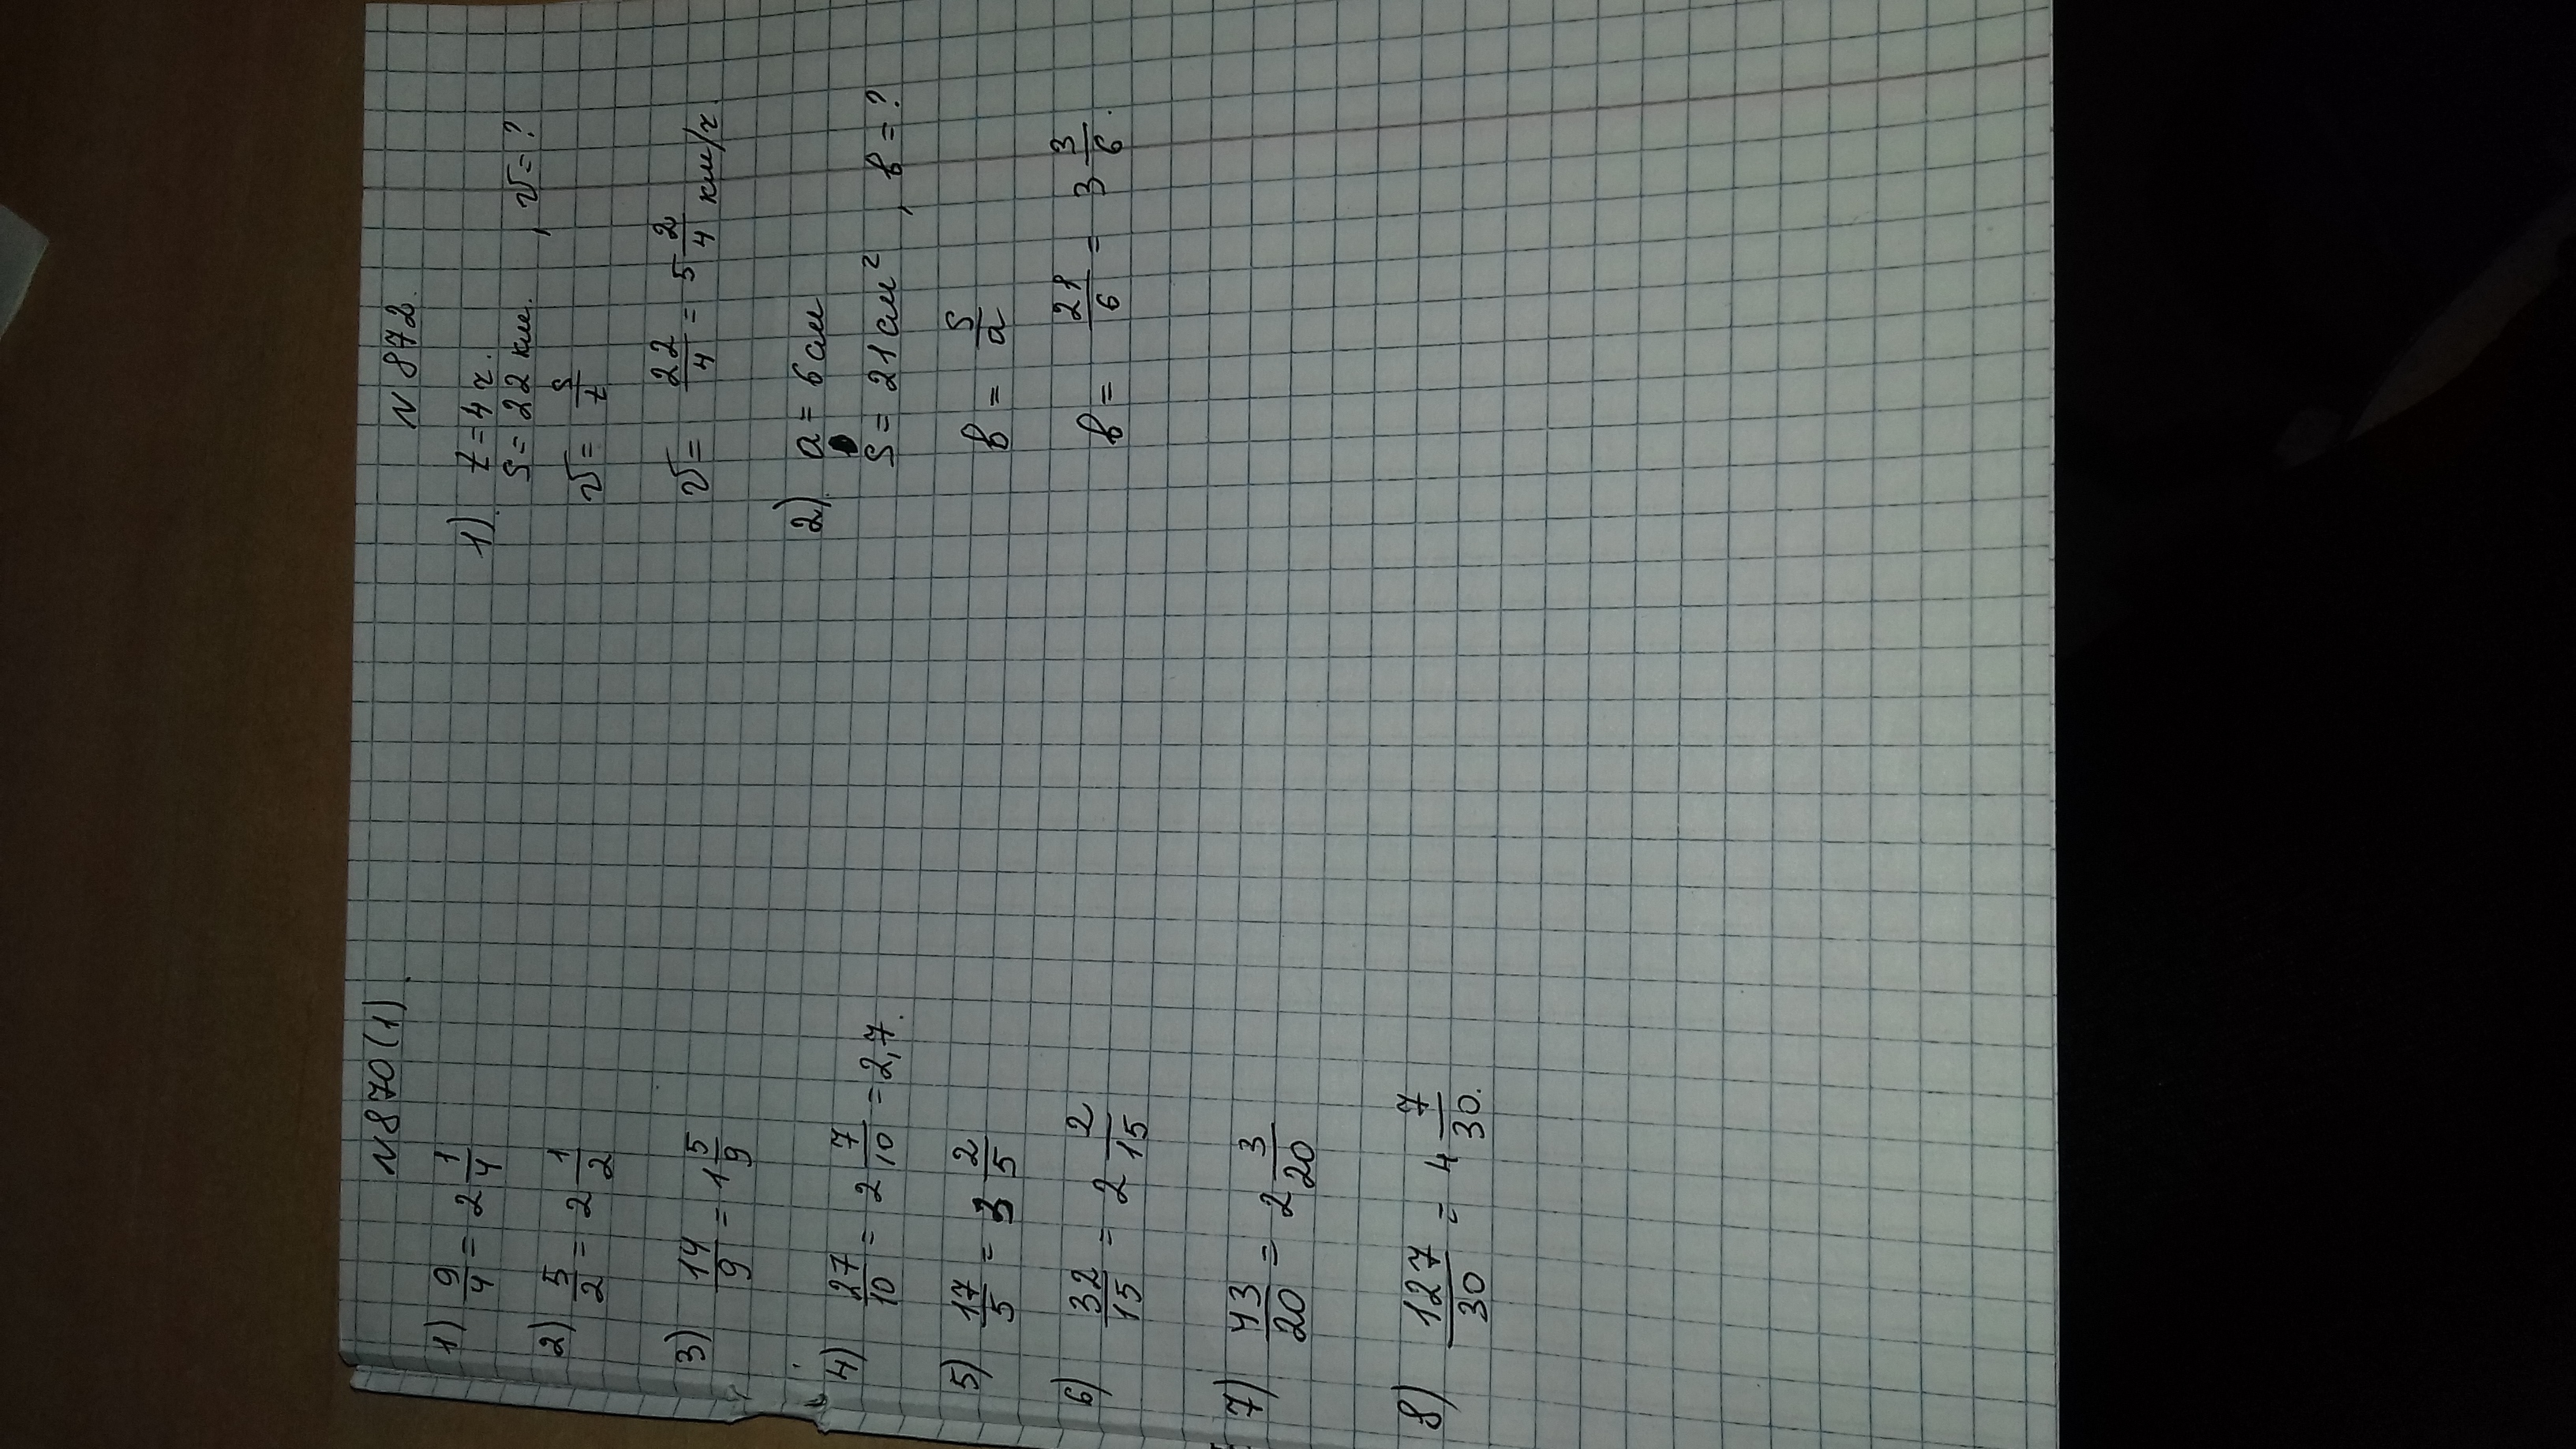 N870(1).
1) 9/4 = 2 1/4
2) 5/2 = 2 1/2
3) 14/9 = 1 5/9
4) 27/10 = 2 7/10 = 2,7.
5) 17/5 = 3 2/5
6) 32/15 = 2 2/15
7) 43/20 = 2 3/20
8) 127/30 = 4 7/30.
N 872.
1). t = 4 ч.
S = 22 км. , v = ?
v = S/t
v = 22/4 = 5 2/4 км/ч.
2). a = 6 см
S = 21 см² , в = ?
в = S/a
в = 21/6 = 3 3/6.